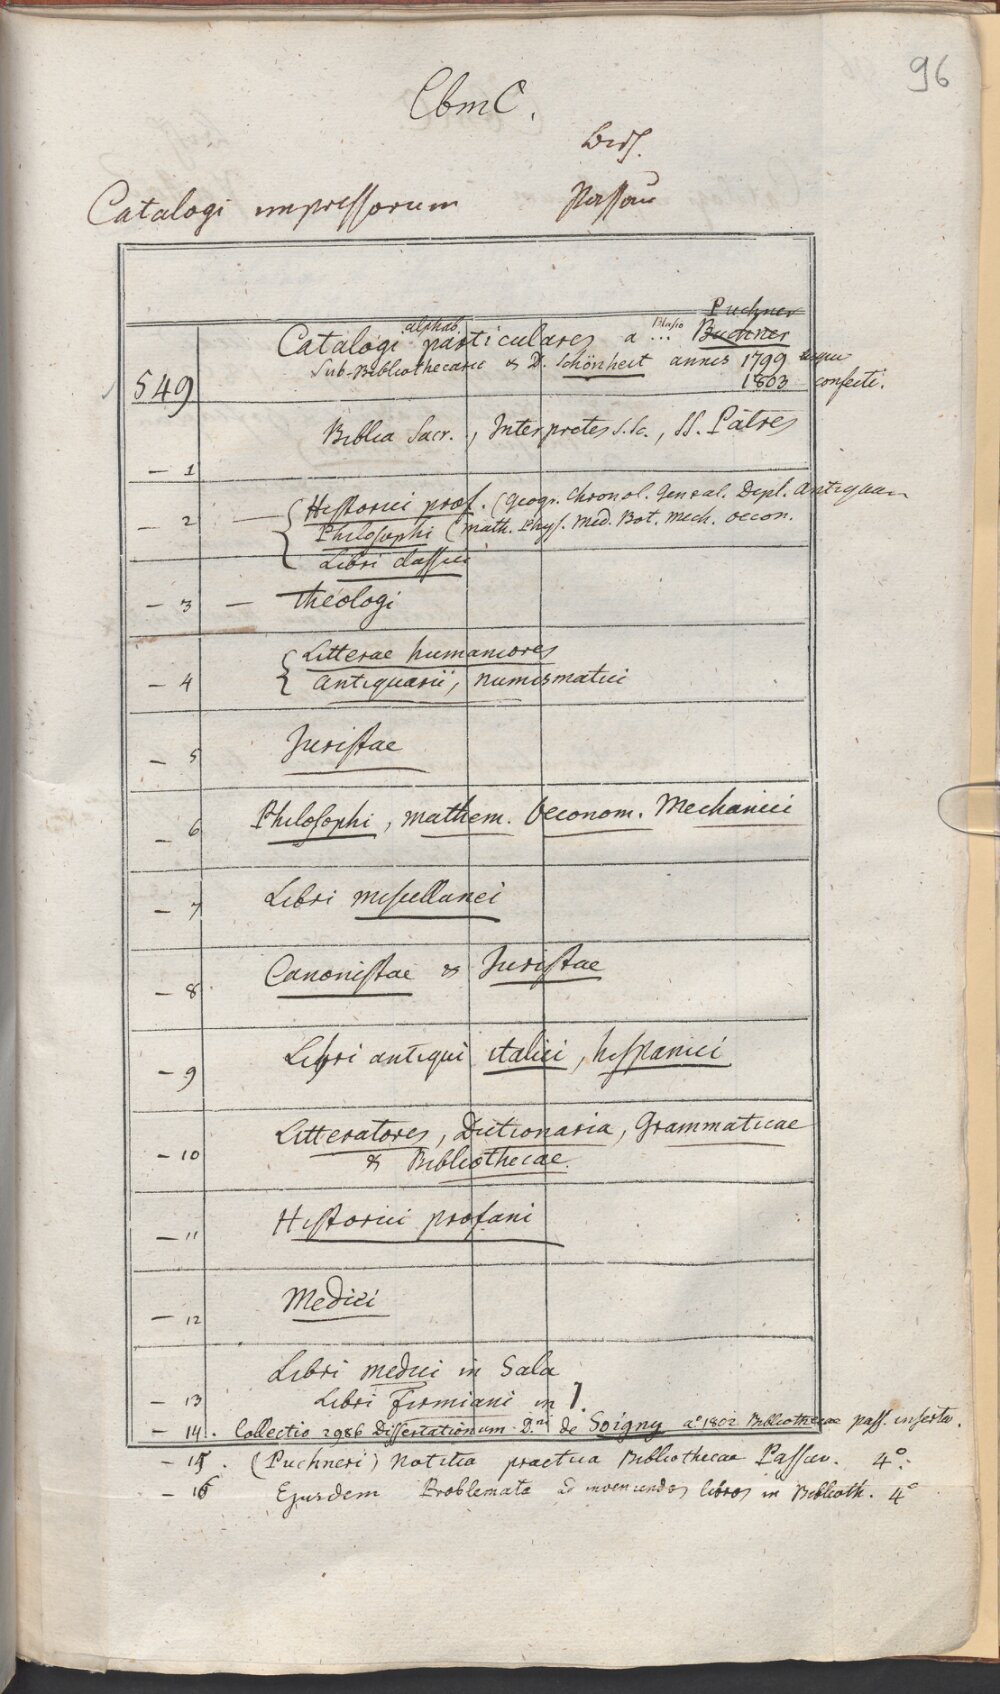 96
CbmC.
Catalogi impressorum Passau
Puchner
alphab. Blasio
Catalogi particulares a ... Buchner
Sub-Bibliothecario & D. Schönheit annis 1799 usque
549 1803 confecti.
– 1 Biblia Sacr., Interpretes S. Sc., SS. Patres
Historici prof. (Geogr. Chronol. Geneal. Dipl. Antiquar.
– 2 — Philosophi (Math. Phys. Med. Bot. Mech. Oecon.
Libri classici
– 3 — Theologi
Litterae humaniores
– 4 Antiquarii, Numismatici
– 5 Juristae
– 6 Philosophi, Mathem. Oeconom. Mechanici
– 7 Libri miscellanei
– 8 Canonistae & Juristae
– 9 Libri antiqui italici, hispanici
Litteratores, Dictionaria, Grammaticae
– 10 & Bibliothecae.
– 11 Historici profani
– 12 Medici
Libri medici in Sala
– 13 Libri Firmiani in J.
– 14. Collectio 2986 Dissertationum D.ni de Soigny aō 1802 Bibliothecae pass. inserta.
– 15. (Puchneri) Notitia practica Bibliothecae Passav. 4°.
– 16 Ejusdem Problemata ad inveniendos libros in Biblioth. 4°